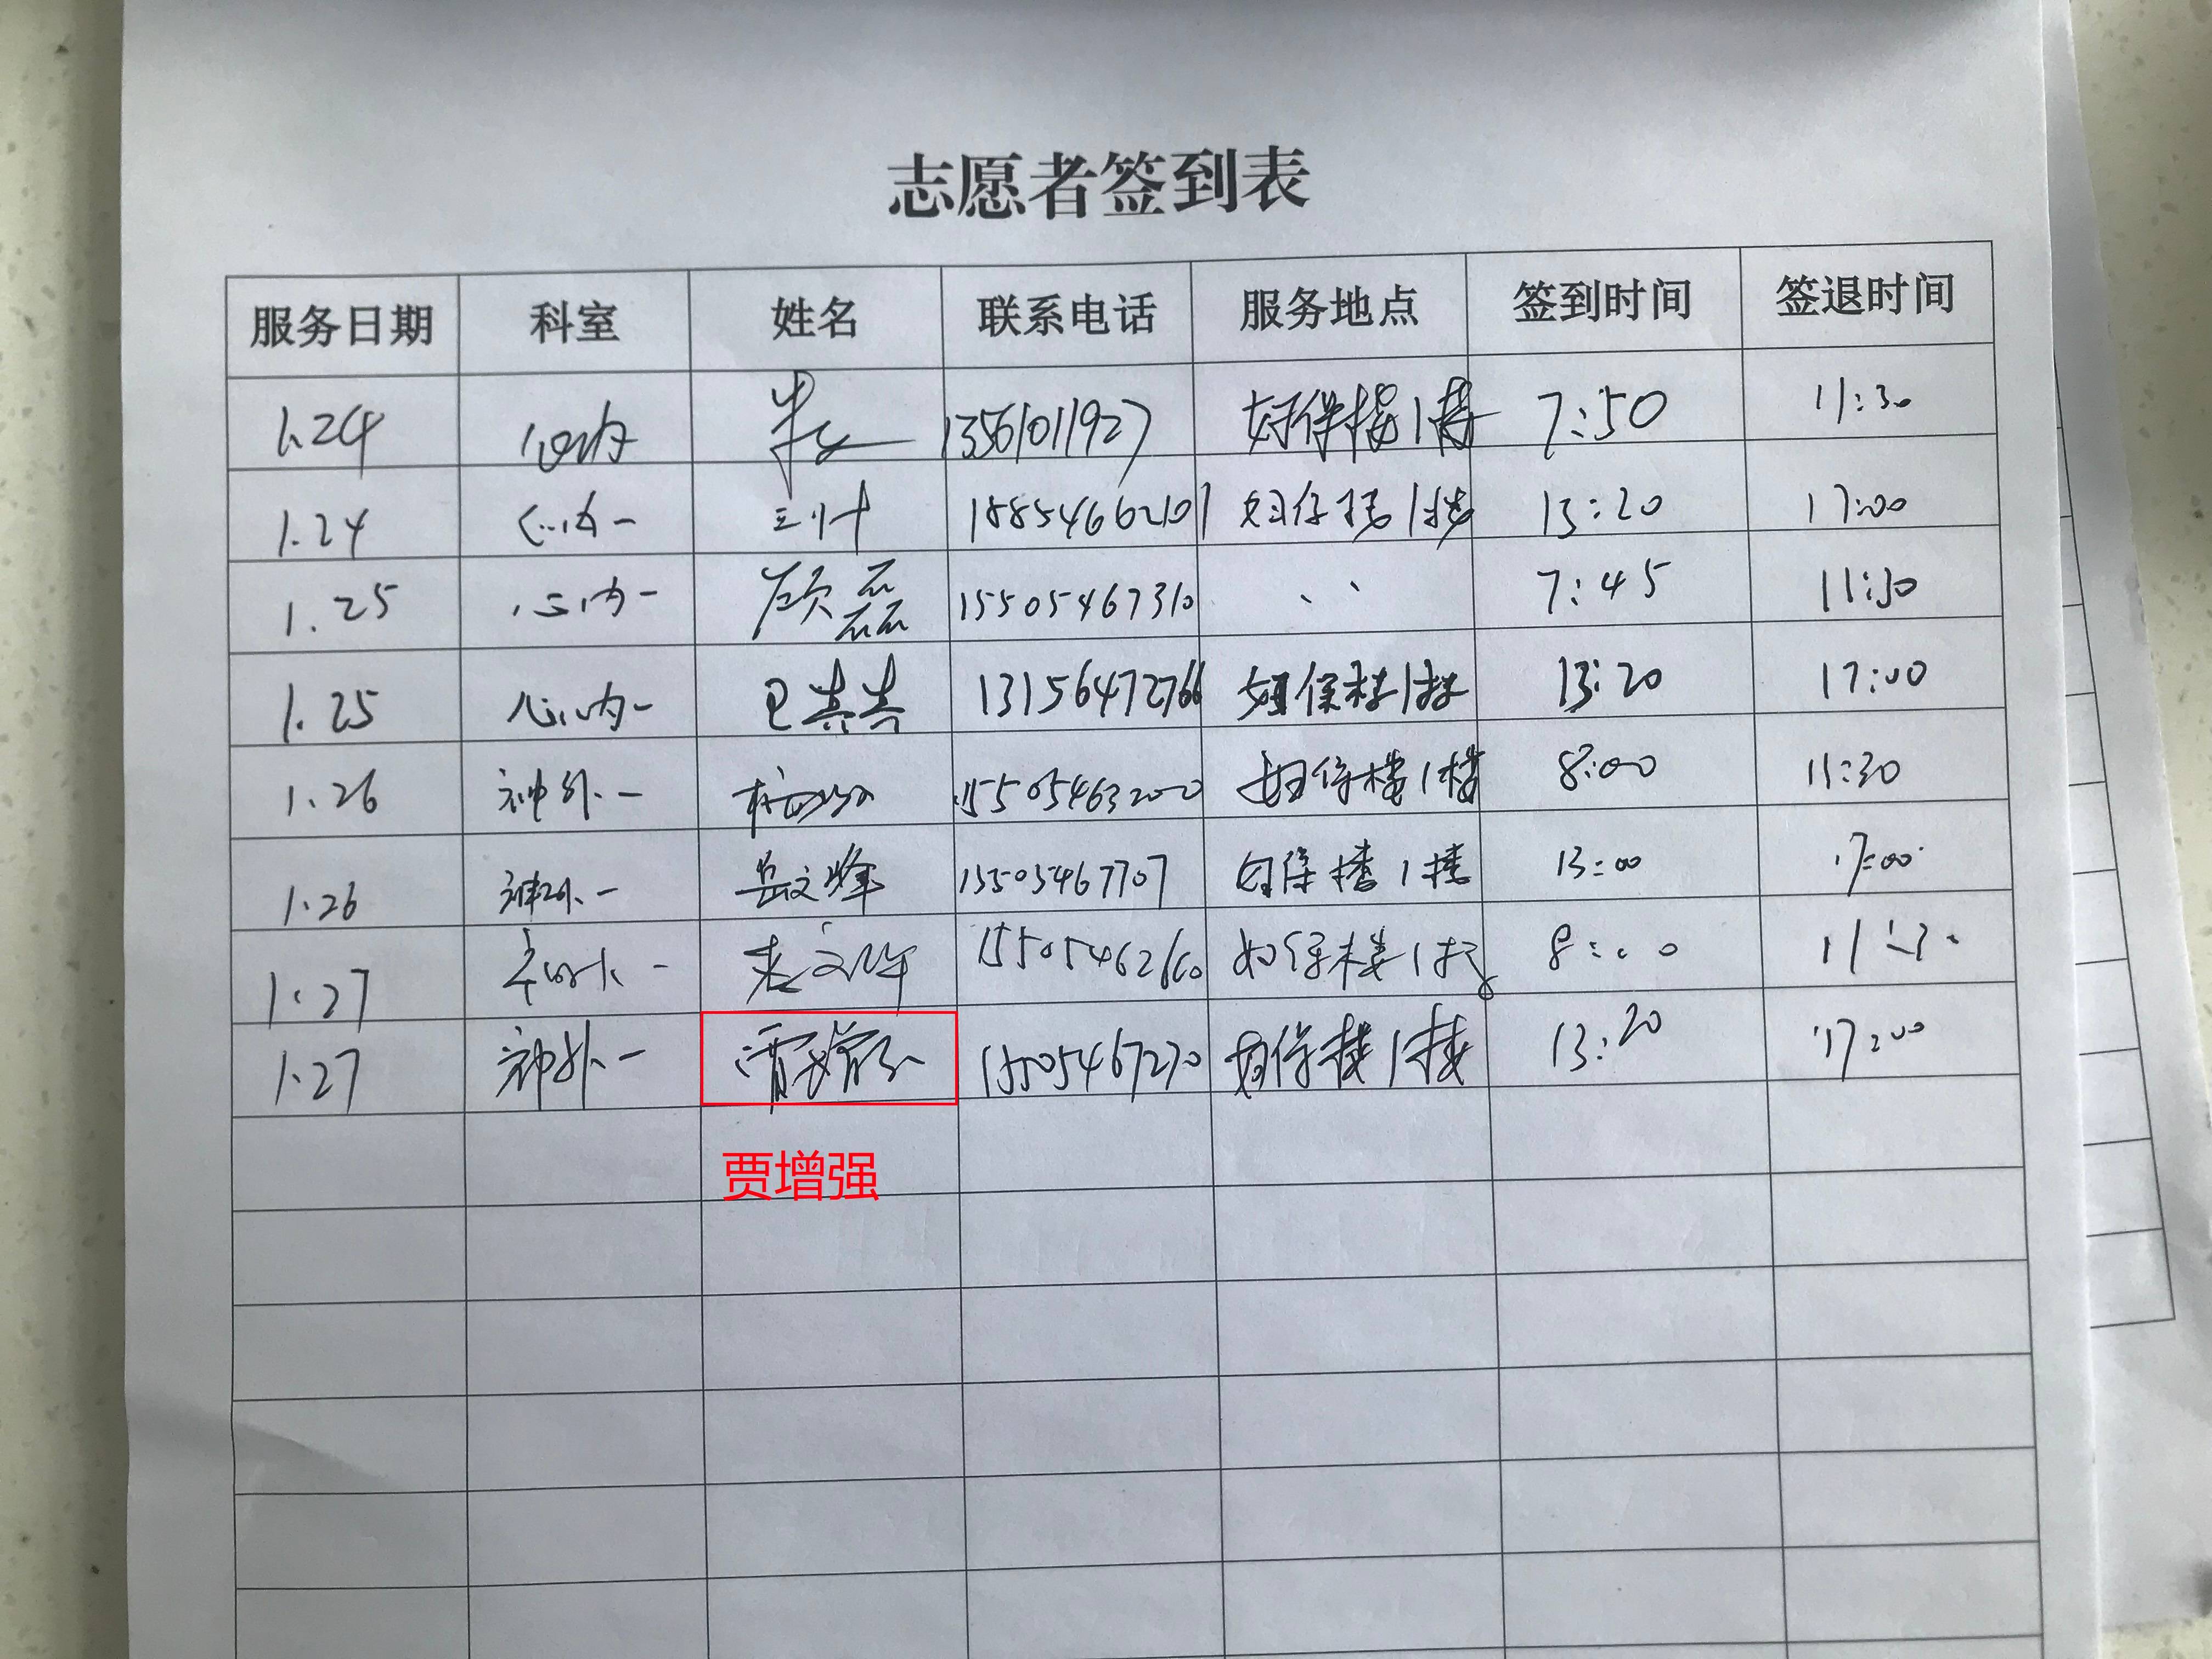 志愿者签到表
服务日期 科室 姓名 联系电话 服务地点 签到时间 签退时间
1.24 心内 13561011927 妇保楼1楼 7:50 11:30
1.24 心内一 18854662107 妇保楼1楼 13:20 17:00
1.25 心内一 顾磊 15505467310 、、 7:45 11:30
1.25 心内一 巴真真 13156472766 妇保楼1楼 13:20 17:00
1.26 神外一 15505463200 妇保楼1楼 8:00 11:30
1.26 神外一 岳文峰 15505467707 妇保楼1楼 13:00 17:00
1.27 神外一 妇保楼1楼 8:00 11:30
1.27 神外一 贾增强 15505467270 妇保楼1楼 13:20 17:00
贾增强